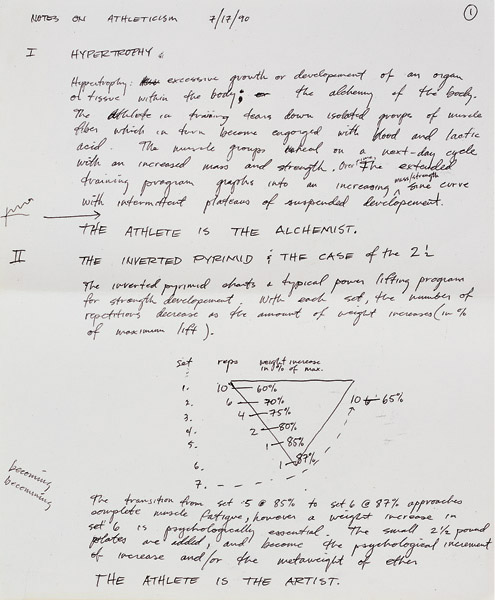 NOTES ON ATHLETICISM 7/17/90
1
I HYPERTROPHY
Hypertrophy: excessive growth or developement of an organ
or tissue within the body; or the alchemy of the body.
The athlete in training tears down isolated groups of muscle
fiber which in turn become engorged with blood and lactic
acid. The muscle groups heal on a next-day cycle
with an increased mass and strength. Over time, The extended
training program graphs into an increasing mass/strength sine curve
with intermittent plateaus of suspended developement.
THE ATHLETE IS THE ALCHEMIST.
II THE INVERTED PYRIMID & THE CASE of the 2½
The inverted pyrimid charts a typical power lifting program
for strength developement. With each set, the number of
repetitions decrease as the amount of weight increases (in %
of maximum lift).
set reps weight increase
in % of max.
1. 10 60%
2. 6 70% 10 65%
3. 4 75%
4. 2 80%
5. 1 85%
6. 1 87%
7.
becoming
becomining
The transition from set 5 @ 85% to set 6 @ 87% approaches
complete muscle fatigue, however a weight increase in
set 6 is psychologically essential. The small 2½ pound
plates are added, and become the psychological increment
of increase and/or the metaweight of ether
THE ATHLETE IS THE ARTIST.